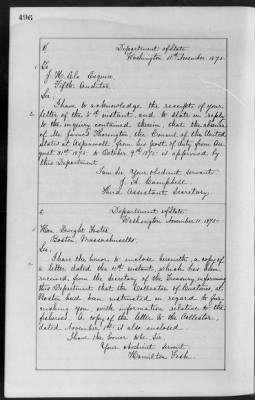 496
Department of State
Washington 11th November, 1875.
To
J. H. Ela Esquire
Fifth Auditor
Sir.
I have to acknowledge the receipt of your
letter of the 5th instant, and to state in reply
to the inquiry contained therein, that the absence
of Mr James Thorington, the Consul of the United
States at Aspinwall from his post of duty from Au-
gust 31st 1875 to October 9th 1875 is approved by
this Department
I am Sir Your obedient servant
J. A. Campbell
Third Assistant Secretary.
Department of State
Washington November 11. 1875.
Hon. Dwight Foster
Boston, Massachusetts.
Sir.
I have the honor to enclose herewith, a copy of
a letter dated the 10th instant, which has been
received, from the Secretary of the Treasury informing
this Department that the Collector of Customs, at
Boston had been instructed in regard to fur-
nishing you with information relative to the
fisheries. A copy of the letter to the Collector,
dated November is also enclosed.
I have the honor to be Sir,
Your obedient servant
Hamilton Fish.